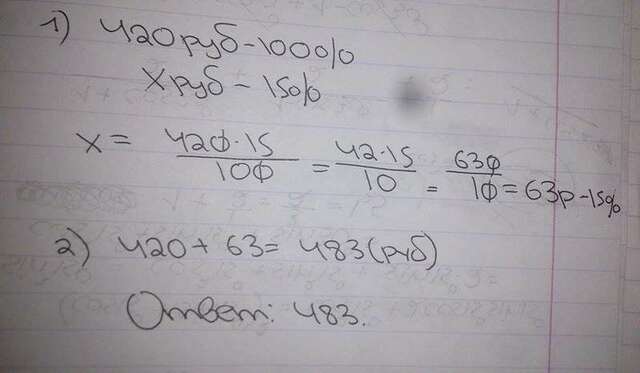 1) 420 руб - 100%
X руб - 15%
x = 420·15/100 = 42·15/10 = 630/10 = 63р - 15%
2) 420 + 63 = 483 (руб)
Ответ: 483.